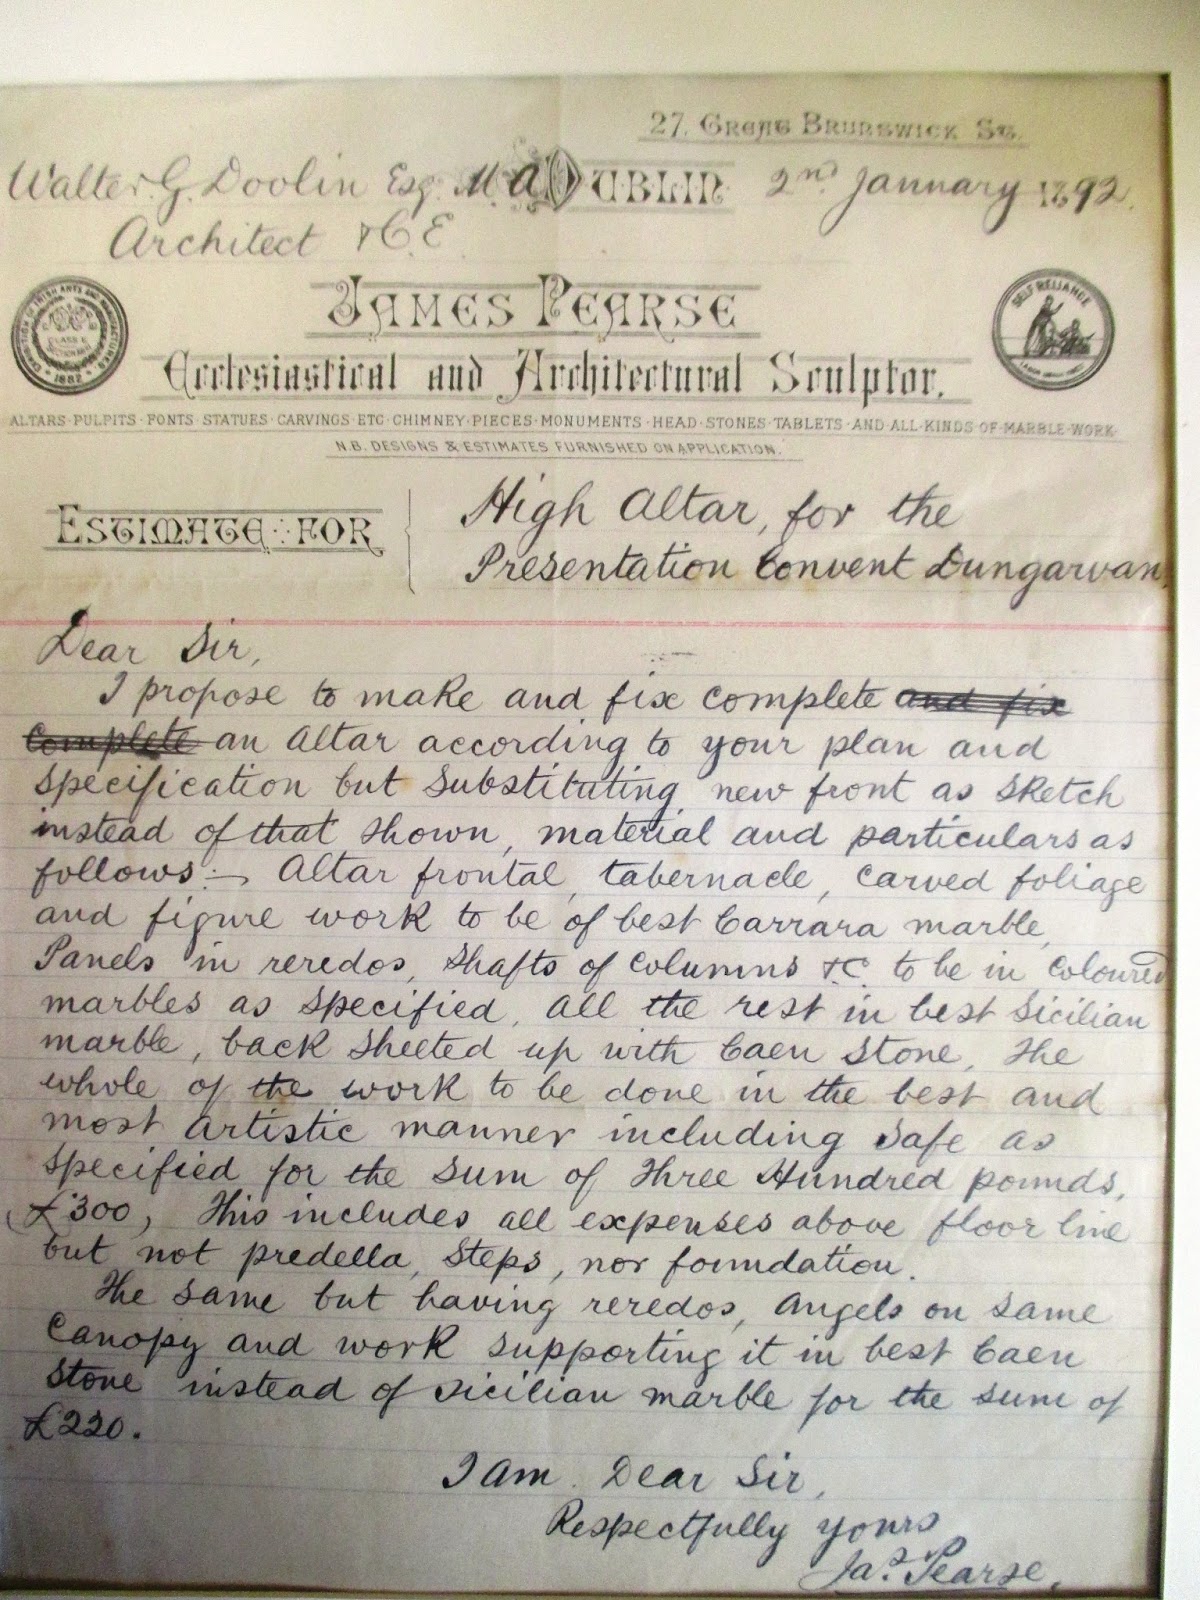 27. Great Brunswick St.
Walter G. Doolin Esq. M.A. Dublin 2nd January 1892.
Architect & C.E
James Pearse
Ecclesiastical and Architectural Sculptor.
EXHIBITION OF IRISH ARTS AND MANUFACTURES
CLASS
1882
SELF RELIANCE
ALTARS·PULPITS·FONTS STATUES·CARVINGS ETC·CHIMNEY·PIECES·MONUMENTS·HEAD·STONES·TABLETS·AND·ALL·KINDS·OF·MARBLE·WORK·
N.B. DESIGNS & ESTIMATES FURNISHED ON APPLICATION.
Estimate for High Altar, for the
Presentation Convent Dungarvan.
Dear Sir,
I propose to make and fix complete and fix
complete an Altar according to your plan and
specification but substituting new front as sketch
instead of that shown, material and particulars as
follows:— Altar frontal, tabernacle, carved foliage
and figure work to be of best Carrara marble,
Panels in reredos, shafts of columns &C. to be in coloured
marbles as specified, all the rest in best Sicilian
marble, back sheeted up with Caen stone, The
whole of the work to be done in the best and
most artistic manner including safe as
specified for the sum of Three Hundred pounds,
(£300, This includes all expenses above floor line
but not predella, steps, nor foundation.
The same but having reredos, angels on same
canopy and work supporting it in best Caen
stone instead of Sicilian marble for the sum of
£220.
I am Dear Sir,
Respectfully yours
Jas. Pearse.